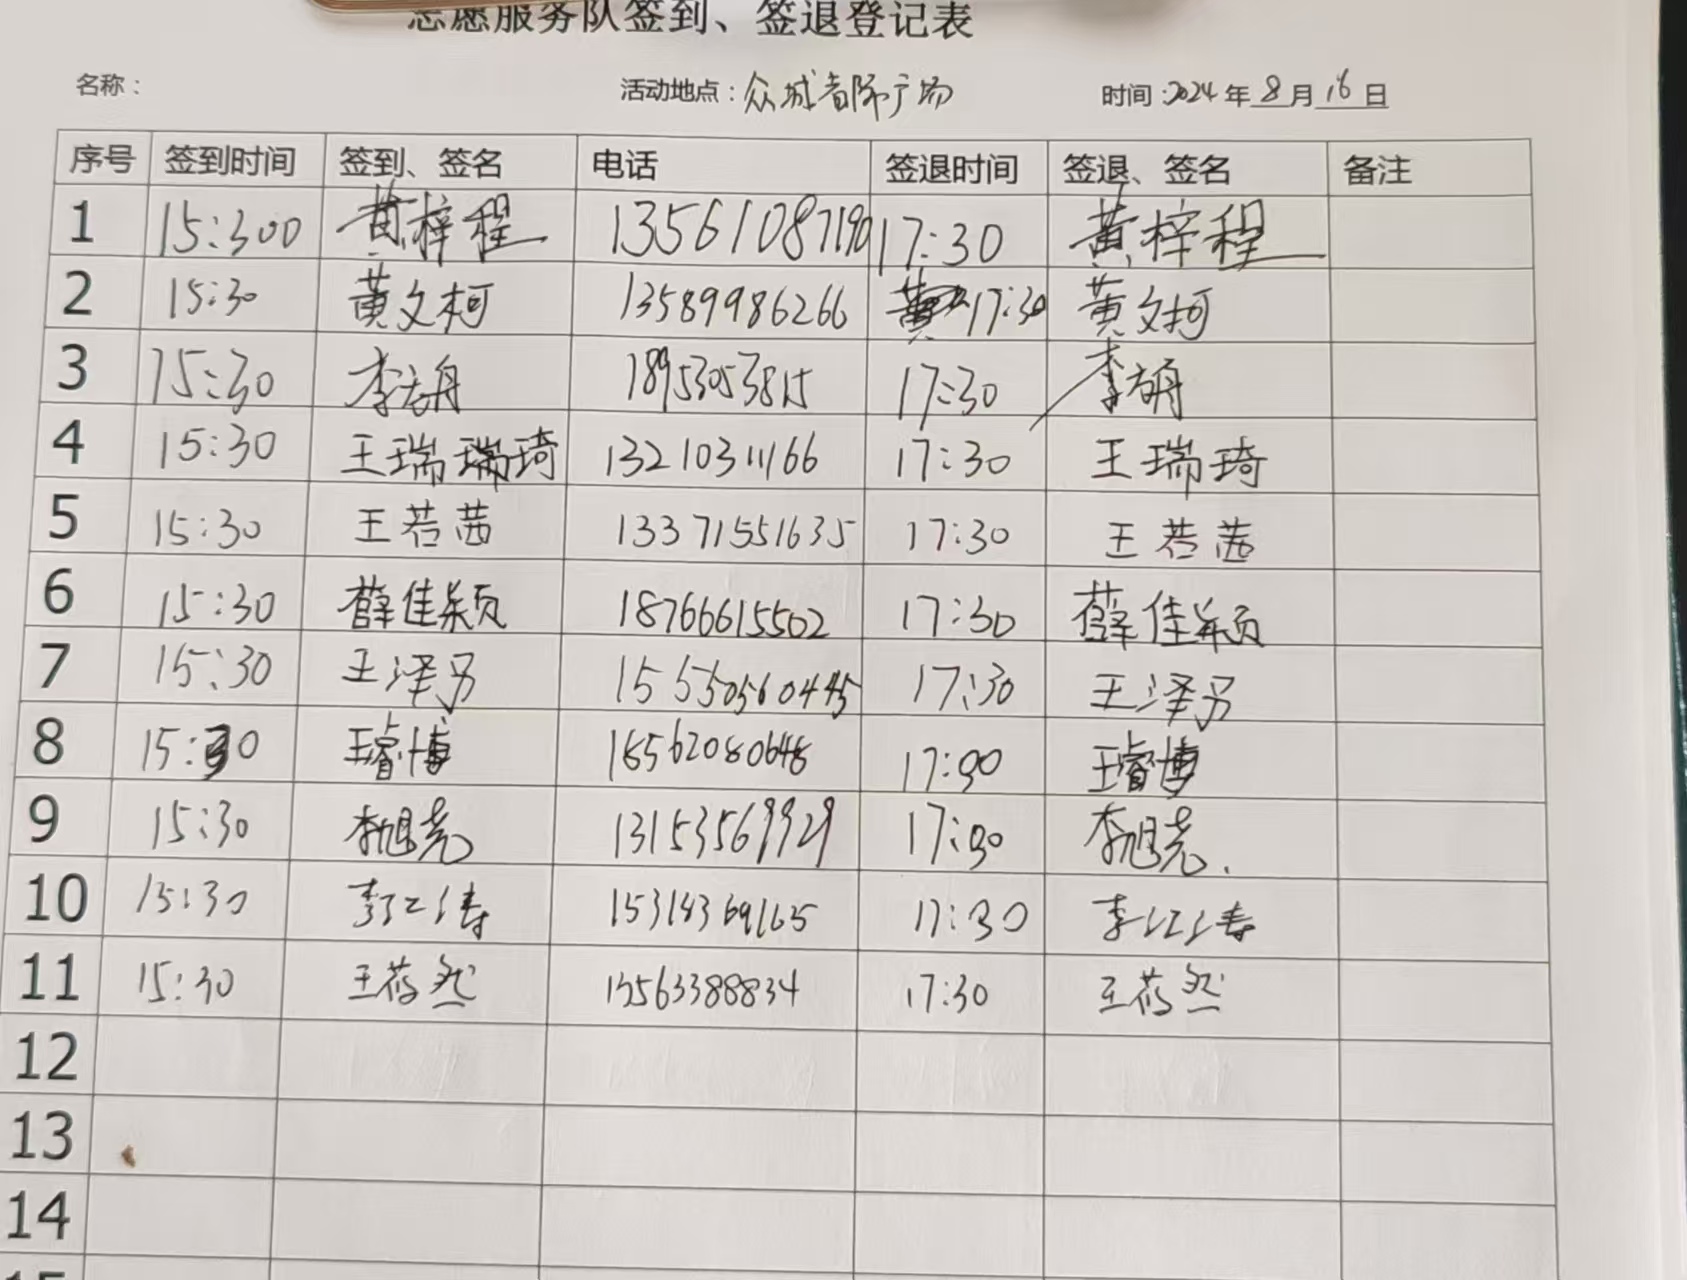 志愿服务队签到、签退登记表
名称： 活动地点：众城首际广场 时间：2024年8月16日
序号 签到时间 签到、签名 电话 签退时间 签退、签名 备注
1 15:300 黄梓程 13561087190 17:30 黄梓程
2 15:30 黄文柯 13589986266 17:30 黄文柯
3 15:30 18953053815 17:30
4 15:30 王瑞瑞琦 13210311166 17:30 王瑞琦
5 15:30 王若茜 13371551635 17:30 王若茜
6 15:30 薛佳颖 18766615502 17:30 薛佳颖
7 15:30 王泽另 155505560445 17:30 王泽另
8 15:30 王睿博 18562080648 17:30 王睿博
9 15:30 李旭尧 13153569929 17:30 李旭尧.
10 15:30 李江涛 15314369165 17:30 李江涛
11 15:30 13563388834 17:30
12
13
14